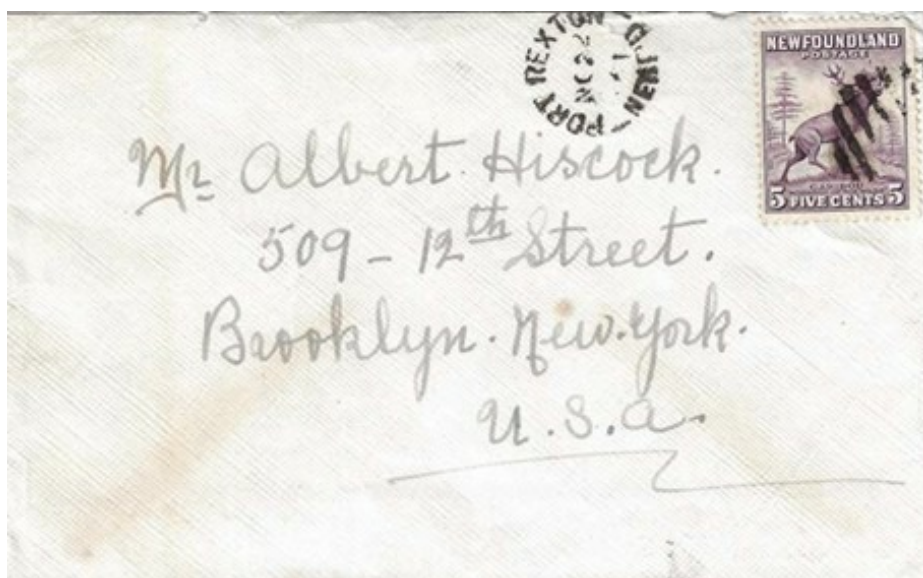 PORT REXTON
NO 24
41
NEWF'D
NEWFOUNDLAND
POSTAGE
CARIBOU
5 FIVE CENTS 5
Mr Albert. Hiscock.
509 - 12th Street.
Brooklyn. New. York.
U. S. a.